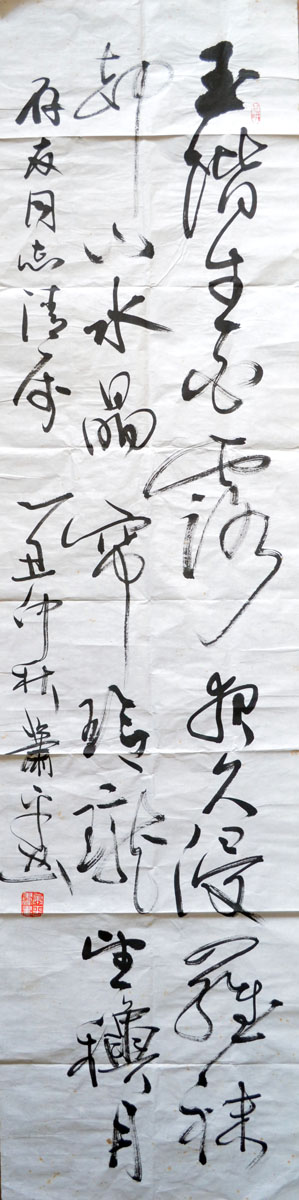 玉階生白露夜久侵羅袜
却下水晶帘玲瓏望穐月
存友同志清属
丁丑仲秋蕭平书